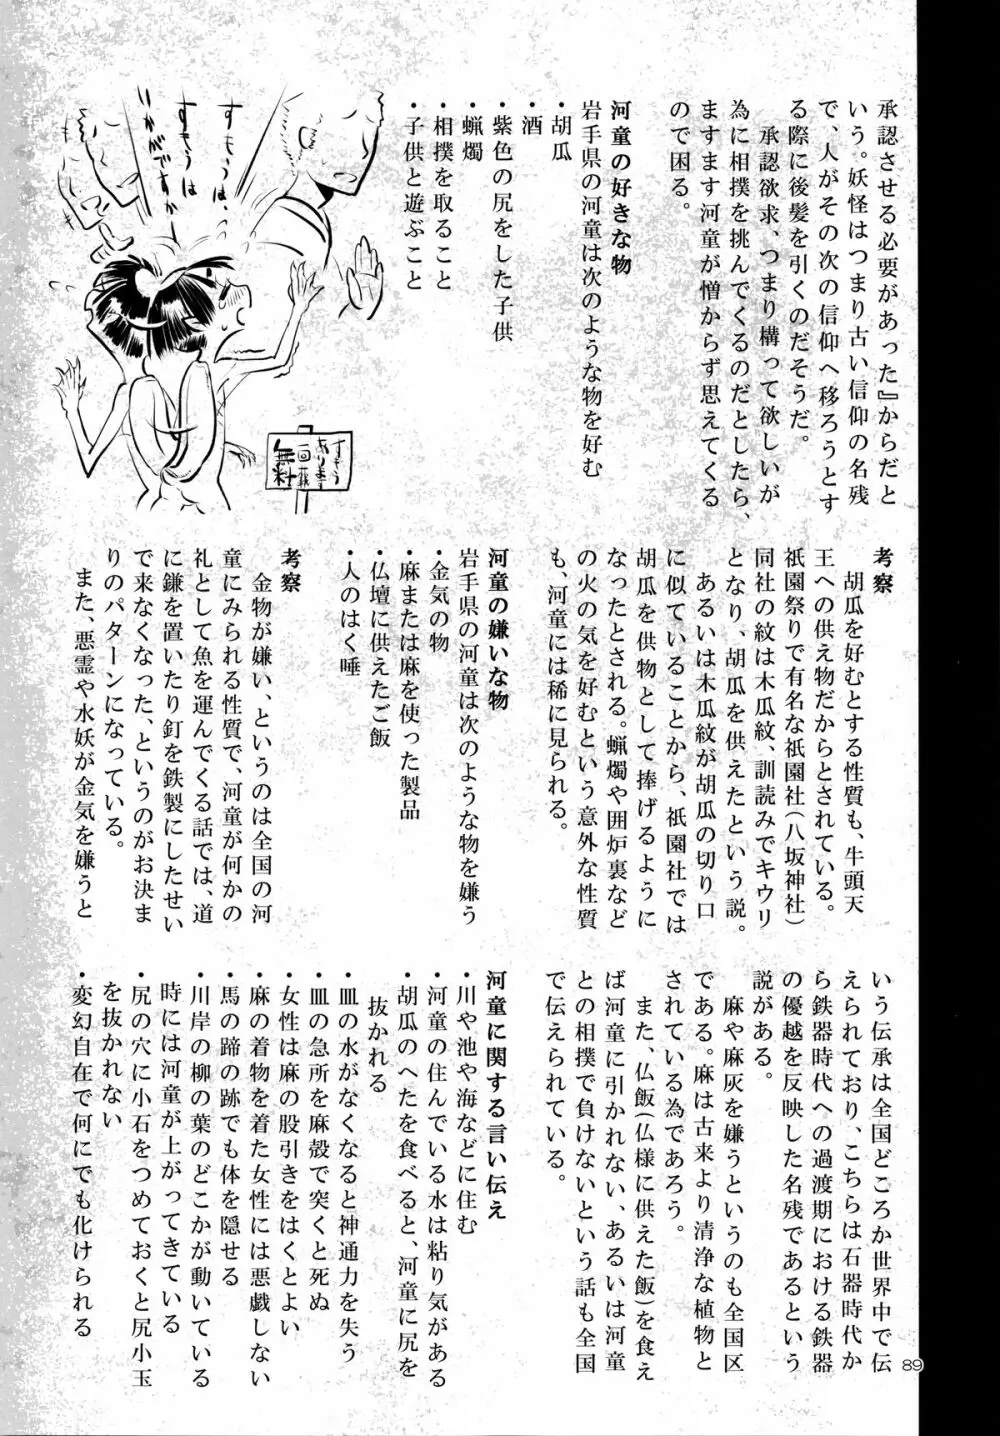 承認させる必要があった』からだと
いう。妖怪はつまり古い信仰の名残
で、人がその次の信仰へ移ろうとす
る際に後髪を引くのだそうだ。
承認欲求、つまり構って欲しいが
為に相撲を挑んでくるのだとしたら、
ますます河童が憎からず思えてくる
ので困る。
河童の好きな物
岩手県の河童は次のような物を好む
・胡瓜
・酒
・紫色の尻をした子供
・蝋燭
・相撲を取ること
・子供と遊ぶこと
すもうは、
すもうは
いかがですか
すもう
あります
一回
無料
考察
胡瓜を好むとする性質も、牛頭天
王への供え物だからとされている。
祇園祭りで有名な祇園社(八坂神社)
同社の紋は木瓜紋、訓読みでキウリ
となり、胡瓜を供えたという説。
あるいは木瓜紋が胡瓜の切り口
に似ていることから、祇園社では
胡瓜を供物として捧げるように
なったとされる。蝋燭や囲炉裏など
の火の気を好むという意外な性質
も、河童には稀に見られる。
河童の嫌いな物
岩手県の河童は次のような物を嫌う
・金気の物
・麻または麻を使った製品
・仏壇に供えたご飯
・人のはく唾
考察
金物が嫌い、というのは全国の河
童にみられる性質で、河童が何かの
礼として魚を運んでくる話では、道
に鎌を置いたり釘を鉄製にしたせい
で来なくなった、というのがお決ま
りのパターンになっている。
また、悪霊や水妖が金気を嫌うと
いう伝承は全国どころか世界中で伝
えられており、こちらは石器時代か
ら鉄器時代への過渡期における鉄器
の優越を反映した名残であるという
説がある。
麻や麻灰を嫌うというのも全国区
である。麻は古来より清浄な植物と
されている為であろう。
また、仏飯(仏様に供えた飯)を食え
ば河童に引かれない、あるいは河童
との相撲で負けないという話も全国
で伝えられている。
河童に関する言い伝え
・川や池や海などに住む
・河童の住んでいる水は粘り気がある
・胡瓜のへたを食べると、河童に尻を
抜かれる
・皿の水がなくなると神通力を失う
・皿の急所を麻殻で突くと死ぬ
・女性は麻の股引きをはくとよい
・麻の着物を着た女性には悪戯しない
・馬の蹄の跡でも体を隠せる
・川岸の柳の葉のどこかが動いている
時には河童が上がってきている
・尻の穴に小石をつめておくと尻小玉
を抜かれない
・変幻自在で何にでも化けられる
89